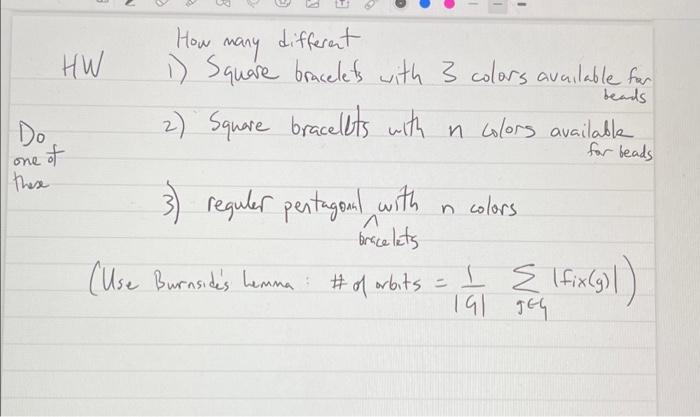 How many different
HW 1) Square bracelets with 3 colors available for
beads
2) Square bracelets with n colors available
for beads
Do
one of
these
3) reguler pentagonal ^ with n colors
bracelets
(Use Burnside's Lemma : # of orbits = 1/|G| ∑ g∈G |fix(g)|)